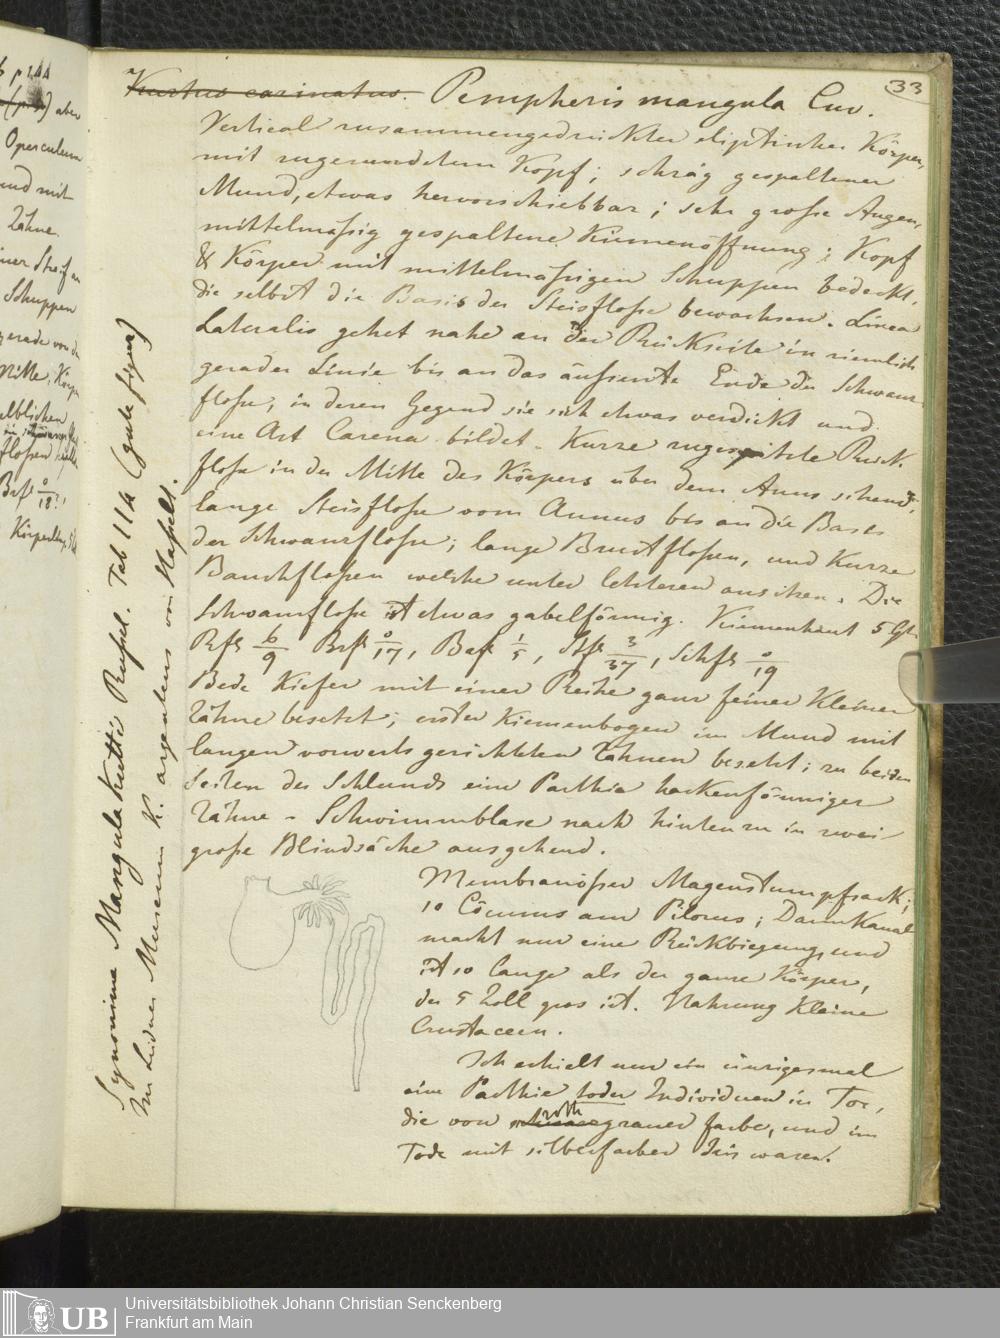 33
Kurtus carinatus. Pempheris mangula Cuv.
Vertical zusammengedrückter eliptischer Körper,
mit zugerundetem Kopf; schräg gespaltener
Mund, etwas hervorschiebbar; sehr große Augen,
mittelmäßig gespaltene Kiemenöffnung; Kopf
& Körper mit mittelmäßigen Schuppen bedeckt,
die selbst die Basis der Steisfloße bewachsen. Linea
Lateralis gehet nahe an der Rückseite in ziemlich
gerader Linie bis an das äußerste Ende der Schwanz
floße, in deren Gegend sie sich etwas verdickt und
eine Art Carena bildet. Kurze zugespitzte Rück
floße in der Mitte des Körpers über dem Anus stehend,
lange Steisfloße vom Annus bis an die Basis
der Schwanzfloße; lange Brustfloßen, und Kurze
Bauchfloßen welche unter letzteren ansitzen. Die
Schwanzfloße ist etwas gabelförmig. Kiemenhaut 5
Rfß 6/9 Brfß 0/17, Baf 1/5, Stfß 3/37, Schfß 0/19
Bede Kiefer mit einer Reihe ganz feiner Kleiner
Zähne besetzt; erster Kiemenbogen im Mund mit
langen vorwerts gerichteten Zähnen besetzt; zu beiden
Seiten des Schlunds eine Parthie hackenförmiger
Zähne - Schwimmblase nach hinten zu in zwei
große Blindsäcke ausgehend.
Membranößer Magenstumpfsack;
10 Cöcums am Pilorus; Darmkanal
macht nur eine Rückbiegung, und
ist so lange als der ganze Körper,
der 5 Zoll gros ist. Nahrung Kleine
Crustaceen.
Ich erhielt nur ein einzigesmal
eine Parthie toder Individuen in Tor,
die von roth grauer farbe, und im
Tode mit silberfarber Iris waren.
Synonime Mangula Kutti Russel. Tab 114 (gute figur)
Im Leidner Museum K. argenteus von Hasselt.
p 144
aber
Operculum
und mit
Zähne
Schuppen
gerade von
Mitte, Körper
elblichen
floßen
0/18
Körperläng
UB
Universitätsbibliothek Johann Christian Senckenberg
Frankfurt am Main